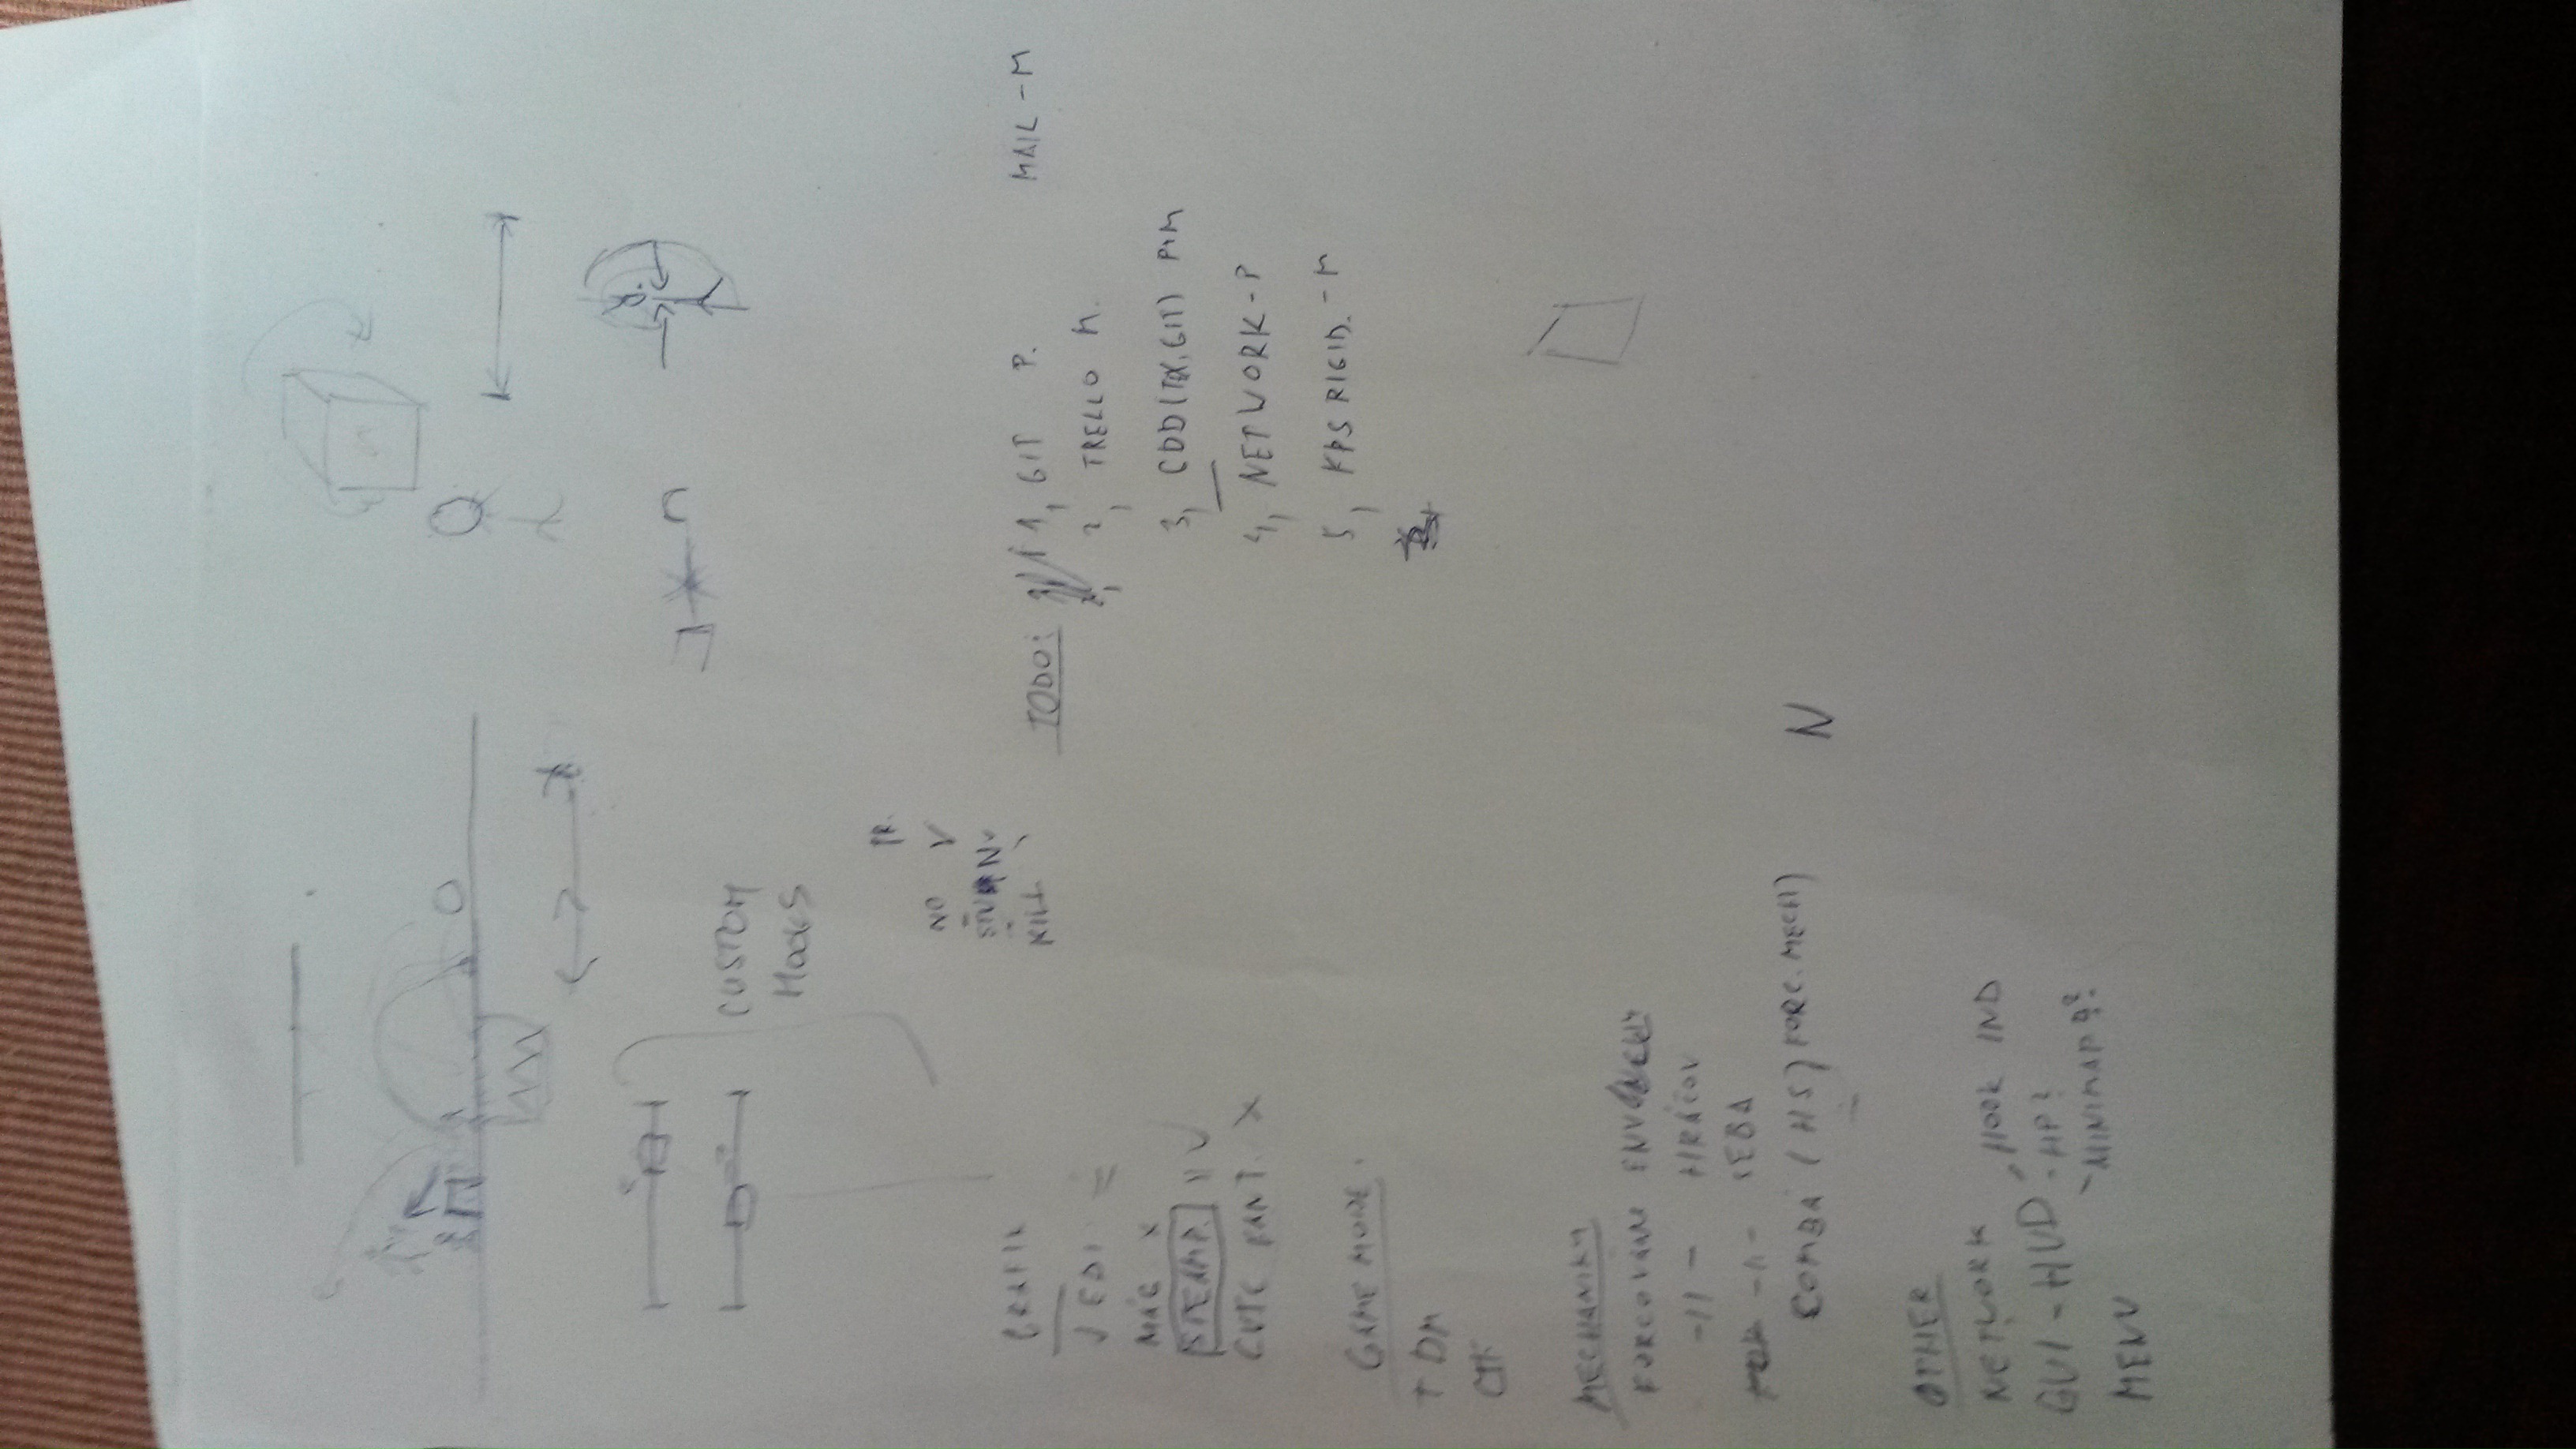 CUSTOM
HOOKS
PR.
NO V
STUN
KILL
GRAFIK
JEDI
MÁG X
STEAMP. V
CUTE FANT. X
GAME MODE.
TDM
CTF
MECHANIKY
FORCOVANIE ENV
-11- HRÁČOV
-11- SEBA
COMBA (HS) FORC. MECH)
N
OTHER
NETWORK
GUI - HUD - HOOK IND
- HP?
- MINIMAP ??
MENU
TODO: 1, GIT P. MAIL - M
2, TRELLO M.
3, GDD (TXT, GIT) P+M
4, NETWORK - P
5, FPS RIGID. - M